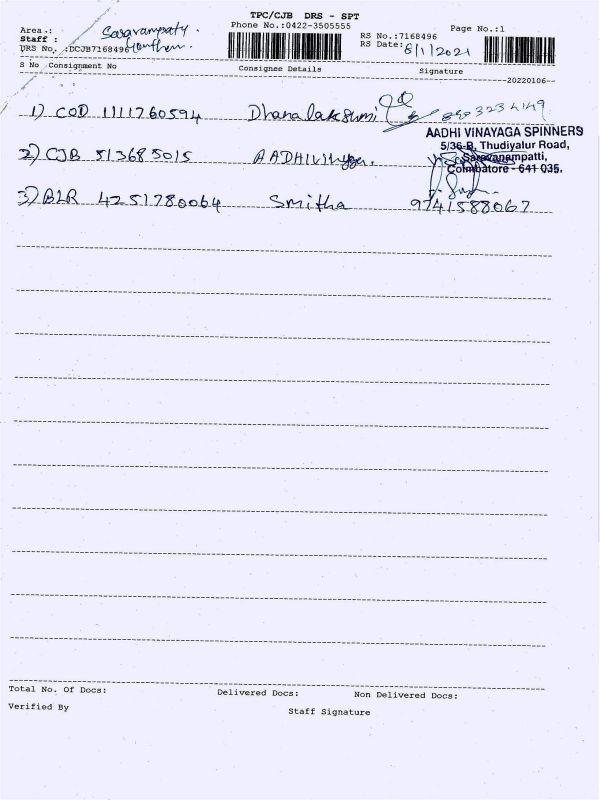 TPC/CJB DRS - SPT
Phone No.:0422-3505555
Page No.:1
Area.: Saravampaty.
RS No.:7168496
Staff :
RS Date: 6/1/2021
DRS No. :DCJB7168496
S No Consignment No Consignee Details Signature
--20220106--
1) COD 1111760594 Dhanalakshmi
AADHI VINAYAGA SPINNERS
5/36-B, Thudiyalur Road,
2) CJB 513685015
Saravanampatti,
Coimbatore - 641 035.
3) BLR 4251780064 Smitha 9741588067
Total No. Of Docs: Delivered Docs: Non Delivered Docs:
Verified By Staff Signature